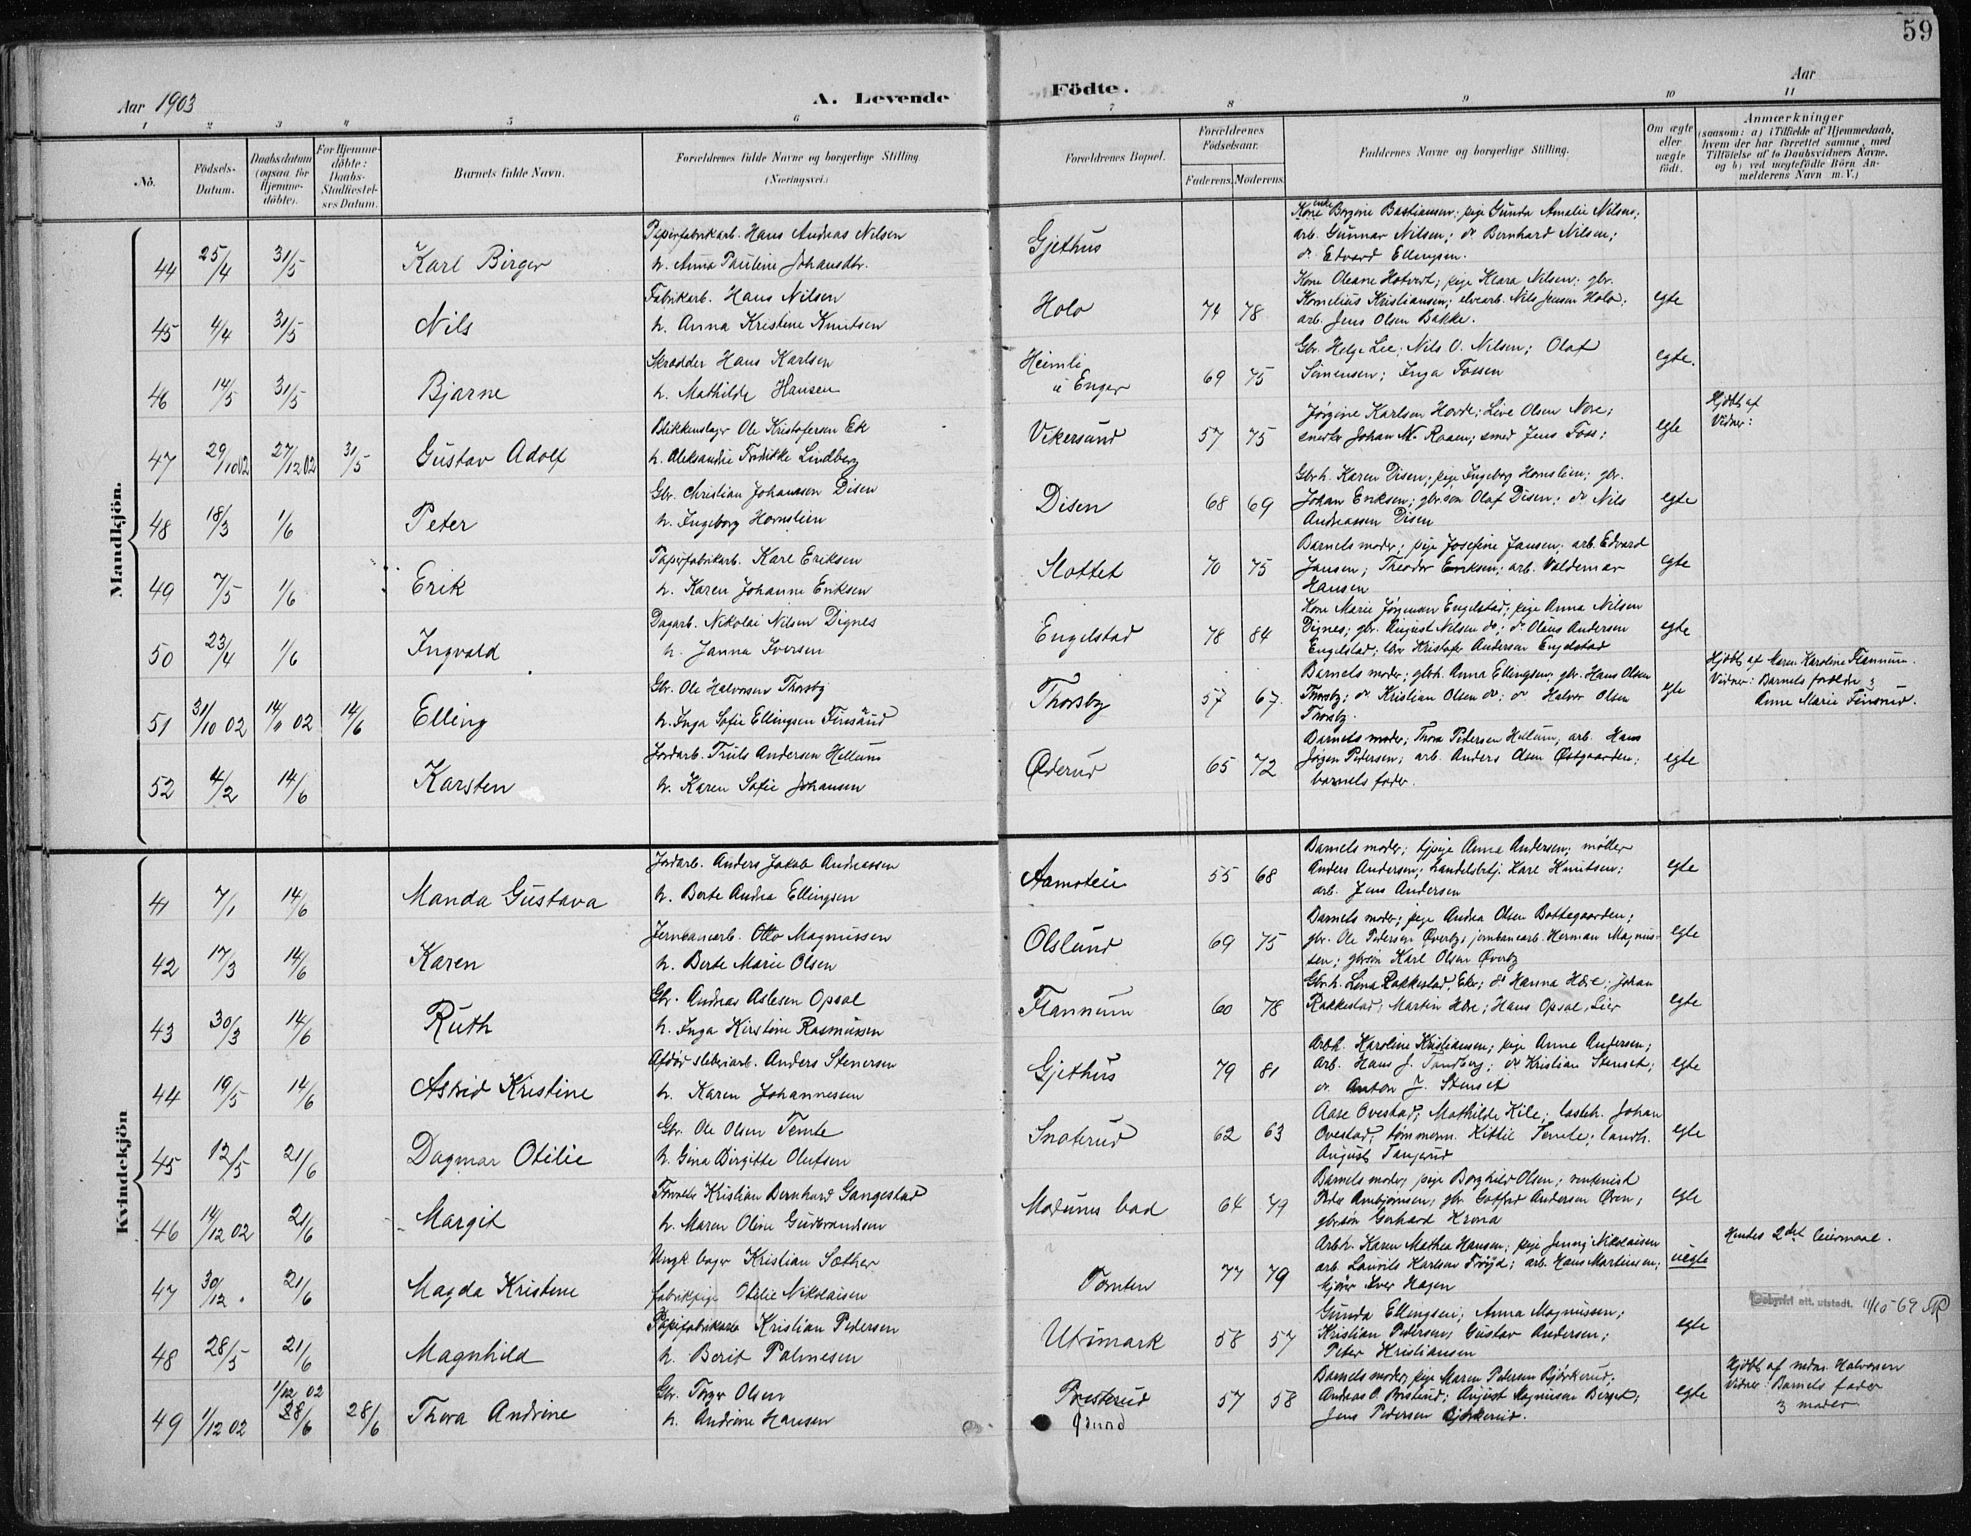 59
Aar 1903
A. Levende
Födte.
Aar
1 2 3 4 5 6 7 8 9 10 11
No.
Födsels-Datum.
Daabsdatum (ogsaa for Hjemme-döbte).
For Hjemme-döbte: Daabs-Stadfæstel-ses Datum.
Barnets fulde Navn.
Forældrenes fulde Navne og borgerlige Stilling. (Næringsvei.)
Forældrenes Bopæl.
Forældrenes Födselsaar.
Faderens. Moderens.
Faddernes Navne og borgerlige Stilling.
Om ægte eller uægte födt.
Anmærkninger
(saasom: a) i Tilfælde af Hjemmedaab, hvem der har forrettet samme, med Tilföielse af to Daabsvidners Navne, og b) ved uægtefödte Börn Anmelderens Navn m. V.)
Mandkjön.
44 25/4 31/5 Karl Birger
Papirfabrikarb. Hans Andreas Nilsen
h. Anna Pauline Johansdtr.
Gjethus
Kone enke Borgine Bastiansen; pige Gunda Amalie Nilsens;
arb. Gunnar Nilsen; do Bernhard Nilsen;
do Edvard Ellingsen.
45 4/4 31/5 Nils
Fabrikarb. Hans Nilsen
h. Anna Kristine Knutsen
Holo 74 78
Kone Oleane Hotvedt; pige Klara Nilsen; gbr.
Kornelius Kristiansen; elvearb. Nils Jensen Holo;
arb. Jens Olsen Bakke.
egte
46 14/5 31/5 Bjarne
Skrædder Hans Karlsen
h. Mathilde Hansen
Heimli
u Enger 69 75
Gbr. Helge Lee; Nils O. Nilsen; Olaf
Simensen; Inga Fossen
egte.
47 29/10 02 27/12 02 31/5 Gustav Adolf
Blikkenslager Ole Kristofersen Ek
h. Aleksandra Fredrikke Lindberg
Vikersund 57 75
Jørgine Karlsen Hovde; Live Olsen Nore;
snedk. Johan M. Raaen; smed Jens Foss;
egte
Hjdöbt af
Vidner:
48 18/3 1/6 Peter
Gbr. Christian Johanssen Disen
h. Ingeborg Hornslien
Disen 68 69
Gbrh. Karen Disen; pige Ingeborg Hornslien; gbr.
Johan Eriksen; gbrsøn Olaf Disen; do Nils
Andreassen Disen
egte
49 7/5 1/6 Erik
Papirfabrikarb. Karl Eriksen
h. Karen Johanne Eriksen
Slottet 70 75
Barnets moder; pige Josefine Jansen; arb. Edvard
Jansen; Theodor Eriksen; arb. Valdemar
Hansen
egte
50 23/4 1/6 Ingvald
Dagarb. Nikolai Nilsen Dignes
h. Janna Iversen
Engelstad 78 84
Kone Marie Jørgensen Engelstad; pige Anna Nilsen
Dignes; gbr. August Nilsen do; do Olaus Andersen
Engelstad; Kristofer Andersen Engelstad
egte
51 31/10 02 14/11 02 14/6 Elling
Gbr. Ole Halvorsen Thorsby
h. Inga Sofie Ellingsen Finsrud
Thorsby 57 67
Barnets moder; gbrh. Anna Ellingsen; gbr. Hans Olsen
Thorsby; do Kristian Olsen do; do Halvor Olsen
Thorsby.
egte
Hjdöbt af Maren Karoline Flannum.
Vidner: Barnets forældre &
Anne Marie Finsrud.
52 4/2 14/6 Karsten
Jordarb. Truls Andersen Hellum
h. Karen Sofie Johansen
Øderud 65 72
Barnets moder; Thora Pedersen Hellum; arb. Hans
Jørgen Pedersen; arb. Anders Olsen Østgaarden;
barnets fader.
egte
Kvindekjön
41 7/1 14/6 Manda Gustava
Jordarb. Anders Jakob Andreassen
h. Berte Andrea Ellingsen
Aamoteie 55 68
Barnets moder; tjpige Anna Andersen; møller
Anders Andersen; handelsbetj. Karl Knutsen;
arb. Jens Andersen
egte
42 17/3 14/6 Karen
Jernbanearb. Otto Magnussen
h. Berte Marie Olsen
Olslund 69 75
Barnets moder; pige Andrea Olsen Bottegaarden;
gbr. Ole Pedersen Øverby; jernbanearb. Herman Magnus-
sen; gbrsøn Karl Olsen Øverby
egte
43 30/3 14/6 Ruth
Gbr. Andreas Aslesen Opsal
h. Inga Kirstine Rasmussen
Flannum 60 78
Gbr.h. Lina Rakkestad, Eker; do Hanna Hære; Johan
Rakkestad; Martin Hære; Hans Opsal, Lier
egte
44 19/5 14/6 Astrid Kristine
Afdør sliberiarb. Anders Stenersen
h. Karen Johannessen
Gjethus 79 81
Arbh. Karoline Kristiansen; pige Anna Andersen;
arb. Hans J. Tandberg; do Kristian Stenset;
do Anton J. Stenset
egte
45 12/5 21/6 Dagmar Otilie
Gbr. Ole Olsen Temte
h. Gina Birgitte Olufsen
Snaterud 62 63
Aase Ovestad; Mathilde Kile; lasteh. Johan
Ovestad; tømmerm. Kittil Temte; landh.
August Tangerud
egte
46 14/12 02 21/6 Margit
Kristian Bernhard Gangestad
h. Maren Oline Gudbrandsen
Modums bad 64 79
Barnets moder; pige Borghild Olsen;
Peder Arnbjørnsen; gbr. Gotfred Andersen Øren;
gbrsøn Gerhard Krona
egte
47 30/12 21/6 Magda Kristine
Ungk. bager Kristian Sæther
fabrikpige Otilie Nikolaisen
Tomten 77 79
Arbh. Karen Mathea Hansen; pige Jenny Nikolaisen
arb. Laurits Karlsen Frøyd; arb. Hans Martinsen;
Iver Hagen
uegte
Hendes 2det Leiermaal.
Gebyrfri att. utstedt. 11/10-69
48 28/5 21/6 Magnhild
Papirfabrikarb Kristian Pedersen
h. Berit Palmesen
Utsimark 58 57
Gunda Ellingsen; Anna Magnussen;
Kristian Pedersen; Gustav Andersen;
Peter Kristiansen
egte
49 1/12 02 1/12 02 28/6 28/6 Thora Andrine
Gbr. Torger Olsen
h. Andrine Hansen
Presterud 57 58
Barnets moder; pige Maren Pedersen Bjørkerud;
Andreas O. Presterud; August Magnussen Berget;
Jens Pedersen Bjørkerud.
egte
Hjdöbt af Halvorsen
Vidner: Barnets fader
& moder